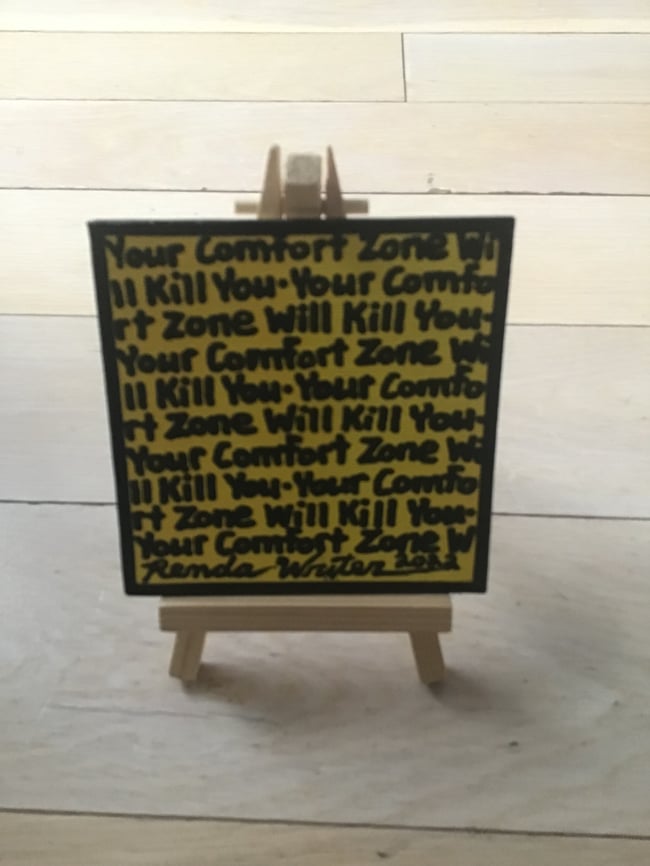 Your Comfort Zone Wi
ll Kill You·Your Comfo
rt Zone Will Kill You·
Your Comfort Zone Wi
ll Kill You·Your Comfo
rt Zone Will Kill You·
Your Comfort Zone Wi
ll Kill You·Your Comfo
rt Zone Will Kill You·
Your Comfort Zone W
Renda Writer 2022